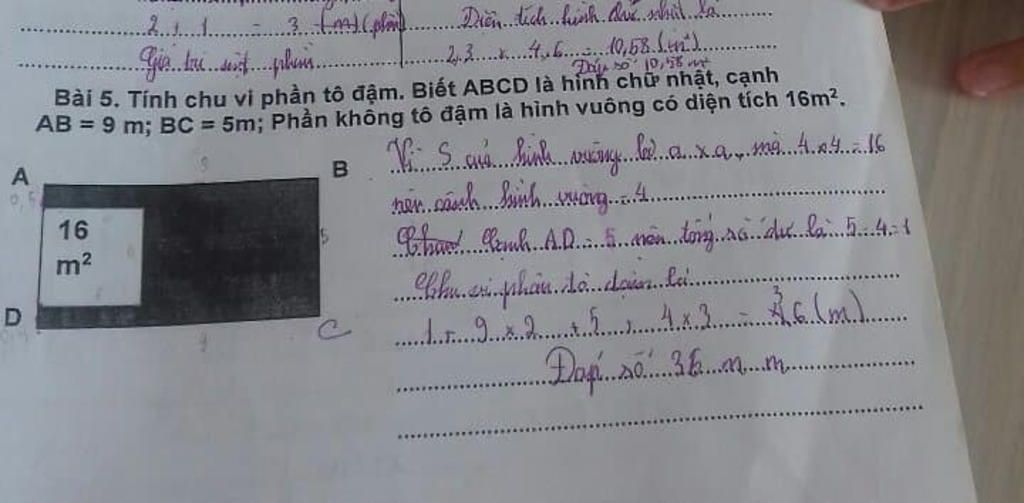 2 + 1 = 3 (m) (phần)
Giá trị một phần
Diện tích hình chữ nhật là
2,3 x 4,6 = 10,58 (m²)
Đáp số 10,58 m²
Bài 5. Tính chu vi phần tô đậm. Biết ABCD là hình chữ nhật, cạnh
AB = 9 m; BC = 5m; Phần không tô đậm là hình vuông có diện tích 16m².
A
B
9
0,5
16
m²
5
D
C
9
Vì S của hình vuông là a x a, mà 4 x 4 = 16
nên cạnh hình vuông = 4
Cạnh AD = 5 nên tổng số dư là 5 - 4 = 1
Chu vi phần tô đậm là
1 + 9 x 2 + 5 + 4 x 3 = 36 (m)
Đáp số 36 m m